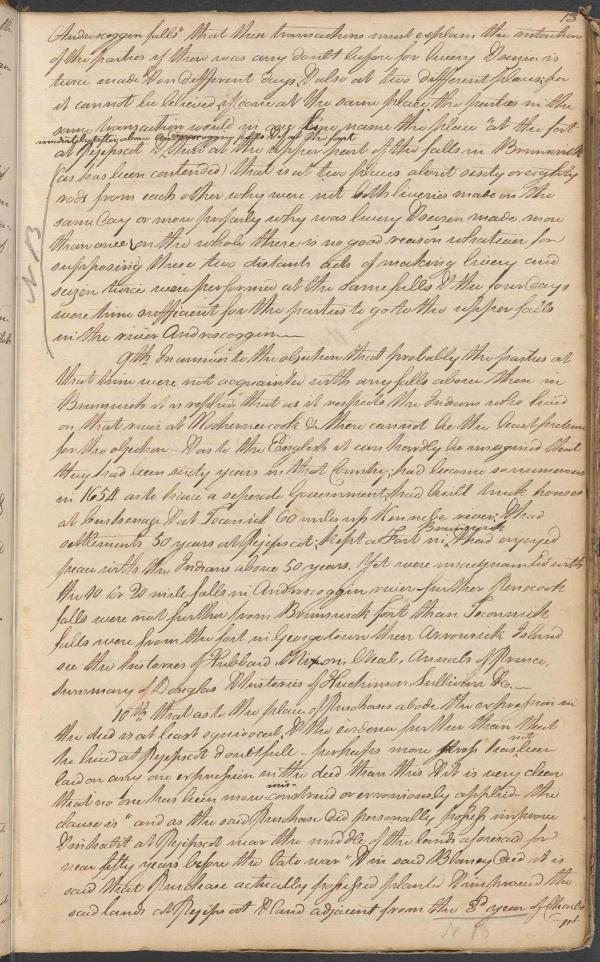 13
Androscoggin falls" that these transactions must explain the intention
of the parties if there was any doubt before for livery & seizen is
twice made & on different days, & also at two different places; for
it cannot be believed, if done at the same place the parties in the
same transaction would in one line name the place "at the fort
immediately after above Androscoggin falls & at the fort
at Pejepscot & then at the upper part of the falls in Brunswick
(as has been contended) that is at two places about sixty or eighty
rods from each other why were not both liveries made on the
same day or more properly why was livery & seizen made more
than once; on the whole there is no good reason whatever for
supposing these two distants acts of making livery and
seizen twice were performed at the same falls & the four days
were time sufficient for the parties to go to the upper falls
in the river Androscoggin
N B
9th In answer to the objection that probably the parties at
that time were not acquainted with any falls above these in
Brunswick it is replied, that as it respects the Indians who lived
on that river at there cannot be the least pretence
for the objection - & as to the English it can hardly be imagined that
they had been sixty years in that Country, had become so numerous
in 1654 as to have a seperate Government; had built truck houses
at Cushenage & at Toconick 60 miles up Kennebe river; & had
settlements 50 years at Pejepscot; kept a Fort in Brunswick & had enjoyed
peace with the Indians above 50 years. Yet were unacquainted with
the 10 or 20 mile falls in Androscoggin river further Penecook
falls were not further from Brunswick fort than Teconnick
falls were from the fort in Georgetown then Arrowsick Island
see the histories of Hubbard, Neal, Annals of Prince,
Summary of Douglas & histories of Hutchinson Sullivan &c
10th that as to the place of Purchases abode the expression in
the deed is at least equivocal, & the evidence further than that
he lived at Pejepscot doubtfull - perhaps more stress has not been
laid on any one expression in the deed than this & it is very clear
that no one has been more misconstrued or erroniously applied - the
clause is "and as the said Purchase did personally possess improve
& inhabit at Pejepscot near the middle of the lands aforesaid for
near fifty years before the late war" & in said Blaney deed it is
said that Purchase actually possessed planted & improved the
said lands at Pejepscot & land adjacent from the 3d year of Charles
1st
N B